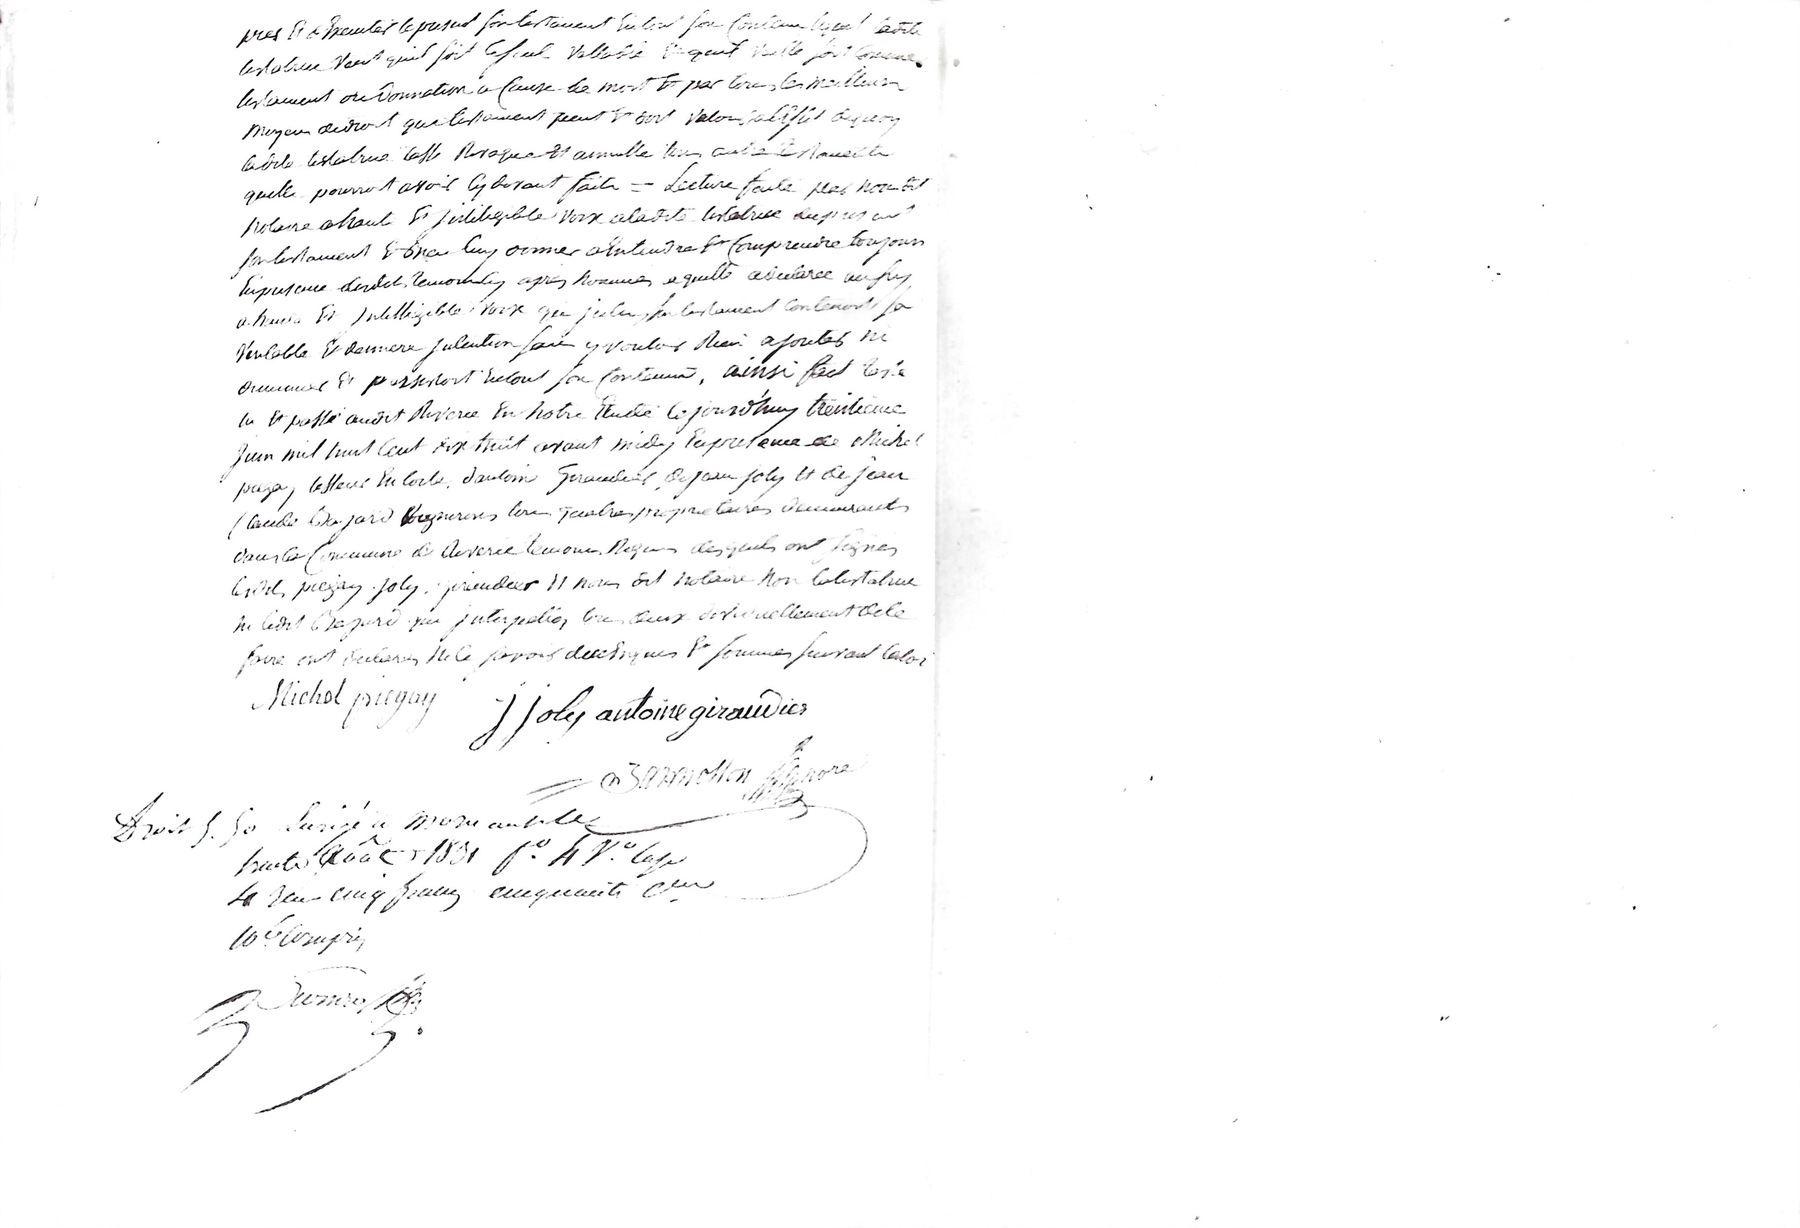 pres Et a Executer le present son testament Entout son Contenu lequel ladite
testatrice Veut quil soit le seul Vallable Et quil Vaille soit Comme
testament ou Donnation a Cause de mort Et par tous les meilleurs
moyens dedroit que testament peut Et doit Valoir aleffet dequoy
ladite testatrice Casse Revoque Et annulle tous autre testaments
quelle pourroit avoir Cydevant faits = Lecture faite par nous dit
Notaire ahaute Et Jntiligible Voix aladite testatrice dupresent
son testament Et Luy donner aEntendre Et Comprendre toujours
Enpresence desdits temoins Cy après nommes aquelle adeclaree
ahaute Et Jntelligible Voix que son testament Contenoit sa
Veritable Et derniere Jntention sans y vouloir Rien ajouter ni
diminuer Et persistoit Entout son Contenu, ainsi fact testé
lu Et passé audit Riverie En Notre Etude Cejourd'huy trentieme
Juin mil huit Cent dix huit avant midy Enpresence de Michel
piegay, dantoine Giraudier, de jean joly Et de jean
Claude Bajard Vignerons tous quatres proprietaires demeurants
dans la Commune de Riverie temoins Requis desquels ont signés
lesdits piegay, joly, giraudier Et nous dit notaire Non latestatrice
ni ledit Bajard qui jnterpellés tous deux Jndividuellement dele
faire ont declarés Nele savoir de Et sommes suivant laloi
Michel piegay
j joly antoine giraudier
Droit 5. 50 Enrégé a mornant le
trente Août 1831 f.° 4 V.° Case
4 Reçu cinq francs cinquante Cmes
10.e Compris